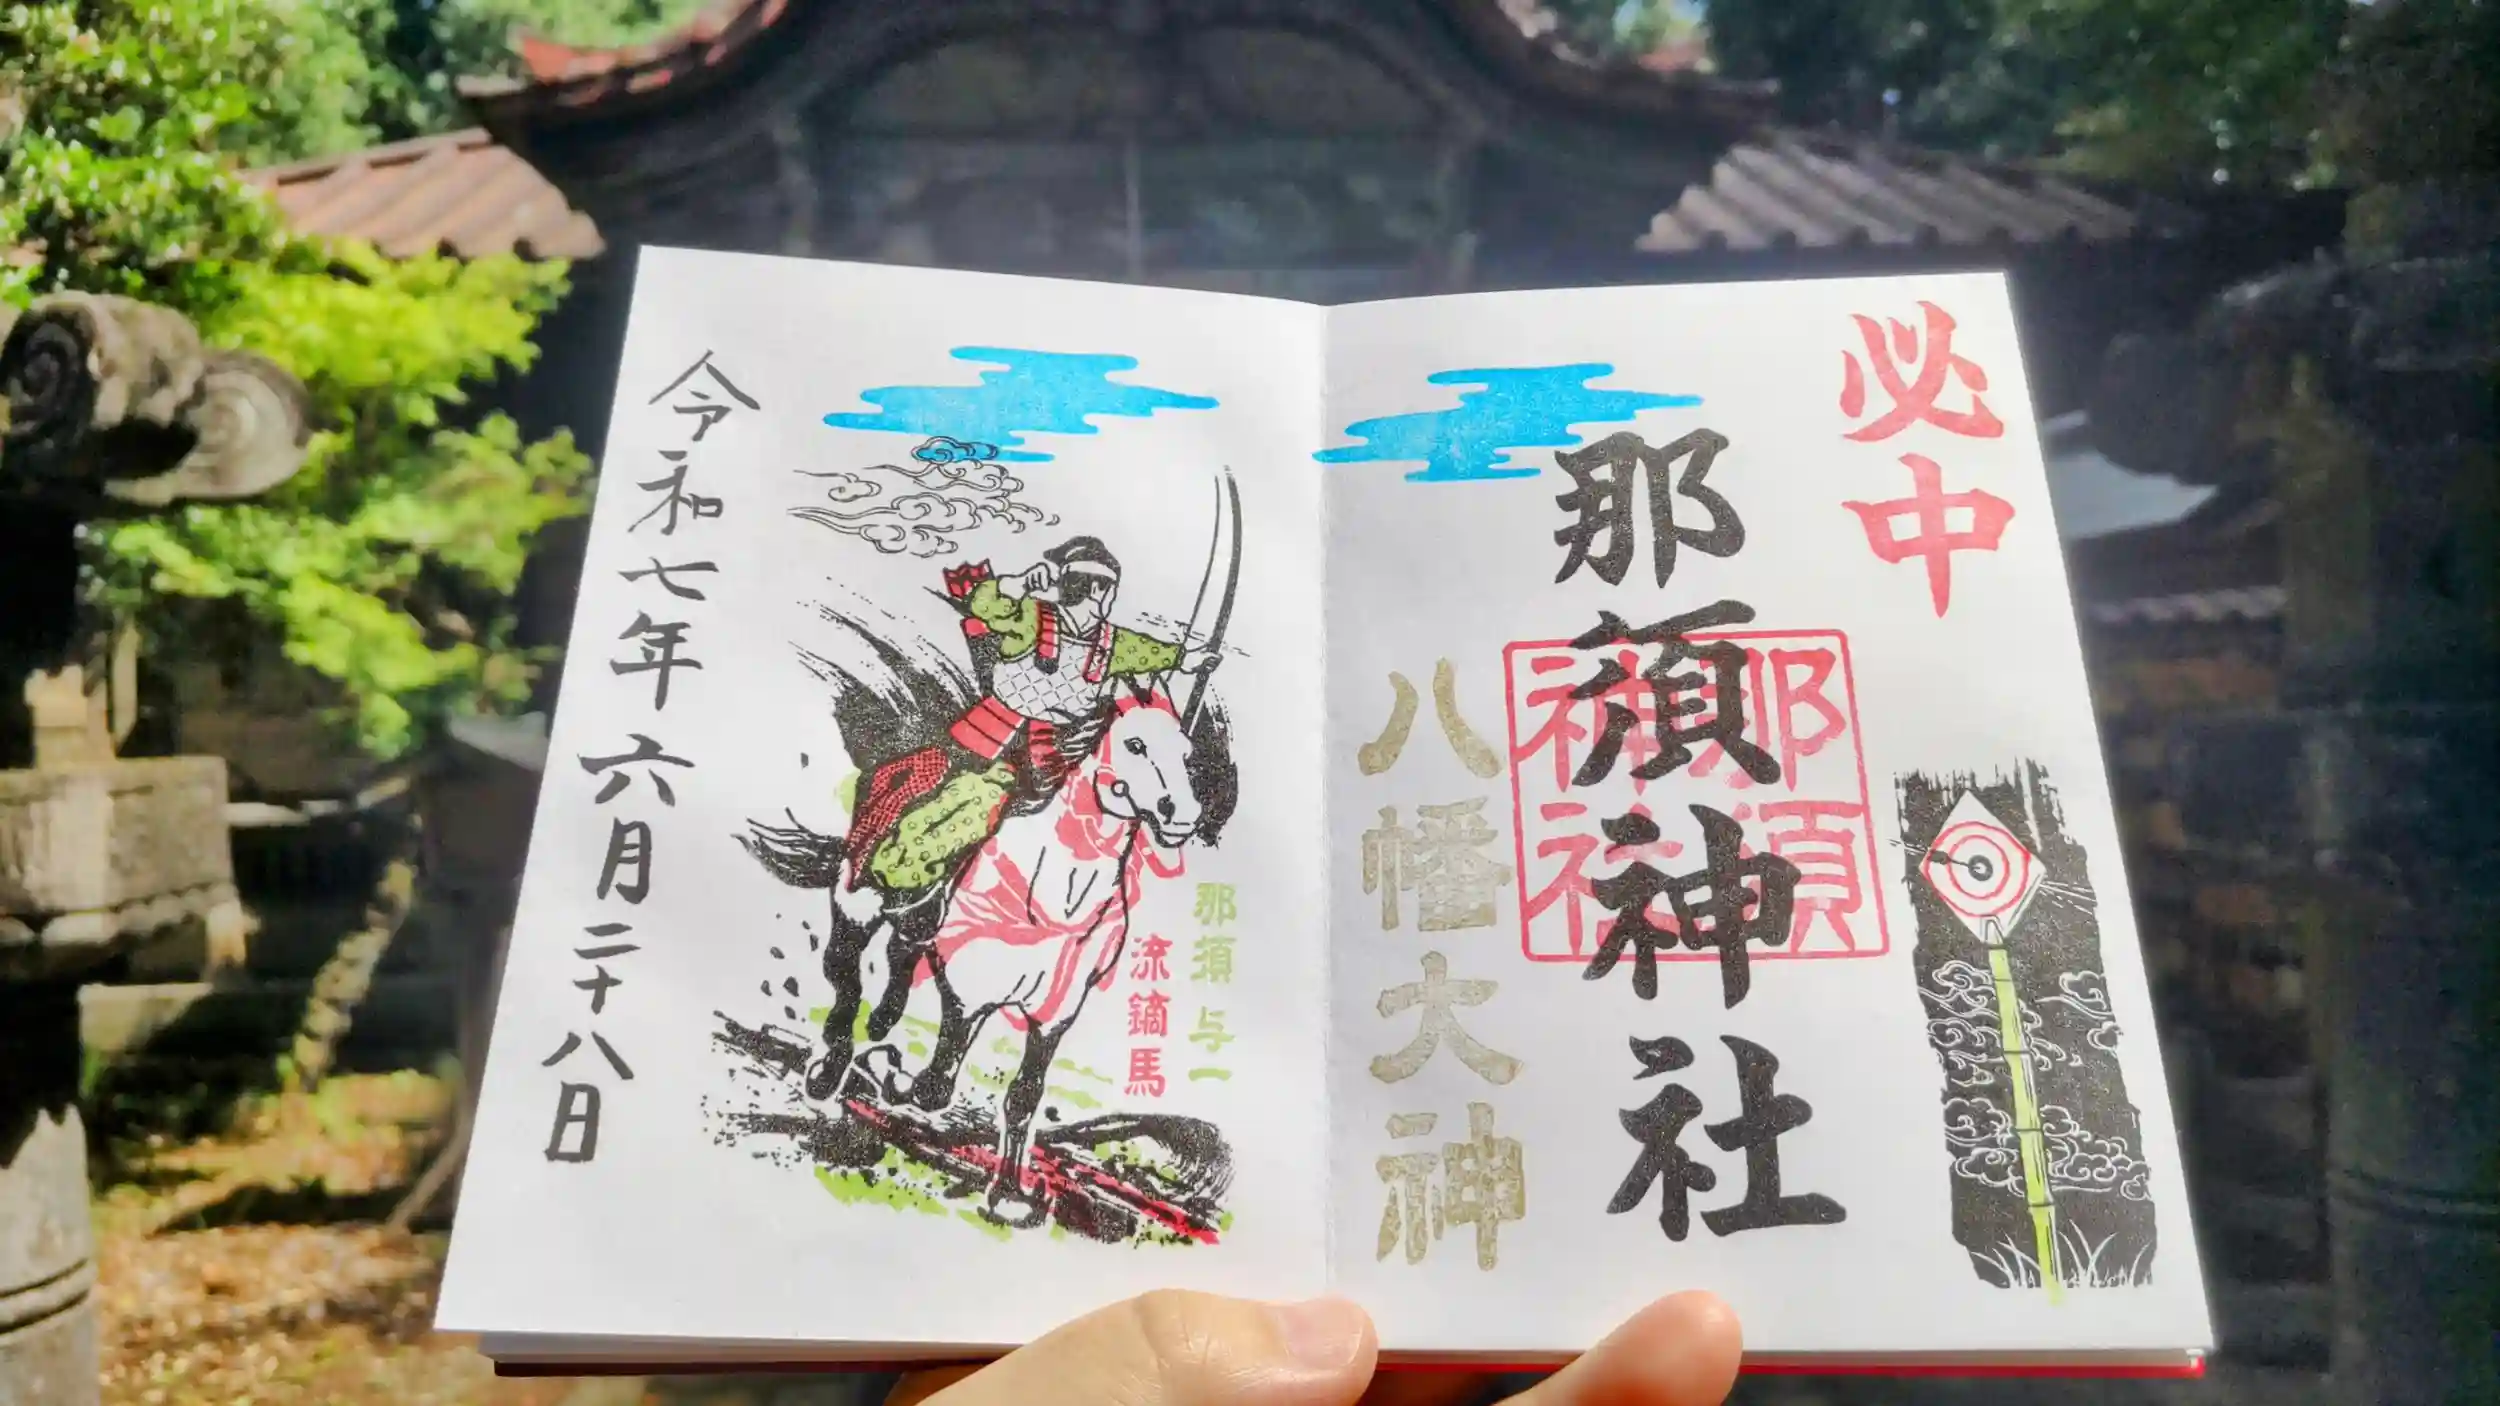 必中
那須神社
那須
神社
八幡大神
那須与一
流鏑馬
令和七年六月二十八日